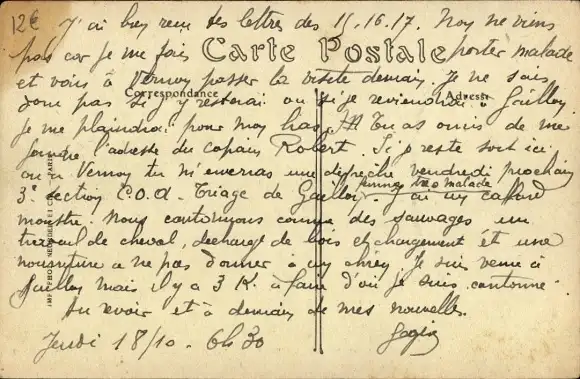 12€ J'ai bien reçu tes lettres des 15.16.17. Moy ne viens
pas car je me fais porter malade
Carte Postale
et vais à Vernon passer la visite demain. Je ne sais
Correspondance
Adresse
donc pas si j'y resterai ou si je reviendrai à Gaillon
je me plaindrai pour mon bras. Tu as omis de me
l'adresse du copain Robert. Si je reste soit ici
ou à Vernon tu m'enverras une dépêche vendredi prochain
femme très malade
3e section C.O.A. Triage de Gaillon. J'ai un cafard
monstre. Nous cantonnons comme des sauvages un
travail de cheval, décharge de bois et chargement et une
nourriture a ne pas donner à un chien Je suis venu à
Gaillon mais il y a 3 K. à faire d'où je suis cantonné.
Au revoir et à demain de mes nouvelles.
Jeudi 18/10. 6h30
IMP. PHOT. PARIS